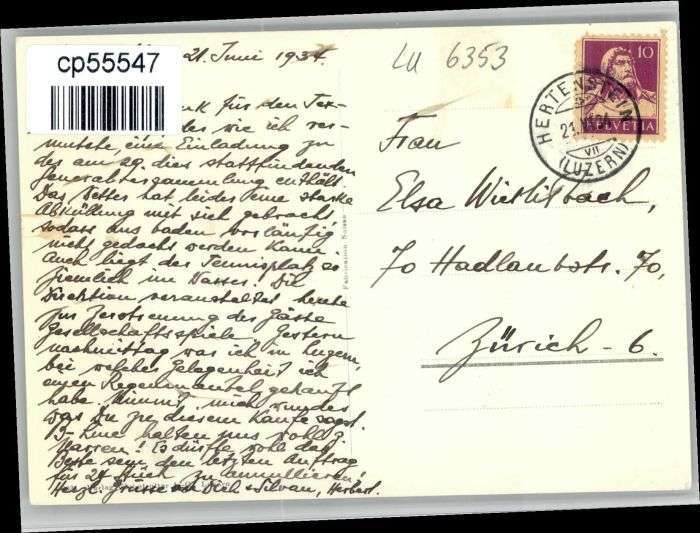 21. Juni 1934
LU 6353
cp55547
für den Tex-
wie ich ver-
mutete, eine Einladung zu
der am 29. dies stattfindenden
Generalversammlung enthält.
Das Wetter hat leider eine starke
Abkühlung mit sich gebracht
sodass ans baden vorläufig
nicht gedacht werden kann.
Auch liegt der Tennisplatz
ziemlich im Wasser. Die
Direktion veranstaltet heute
zur Zerstreuung der Gäste
Gesellschaftsspiele. Gestern
nachmittag war ich in Luzern,
bei welcher Gelegenheit ich
einen Regenmantel gekauft
habe. Nimmt mich wunder
was Du zu diesem Kaufe sagst.
halten uns wohl z.
Narren! Es dürfte wohl das
Beste sein den letzten Auftrag
für 24 Stück zu annullieren!
Herzl. Grüsse an Dich & Silvan, Herbert.
10
HELVETIA
HERTENSTEIN
(LUZERN)
VII
Frau
Elsa
70 Hadlaubstr. 70,
Zürich - 6.